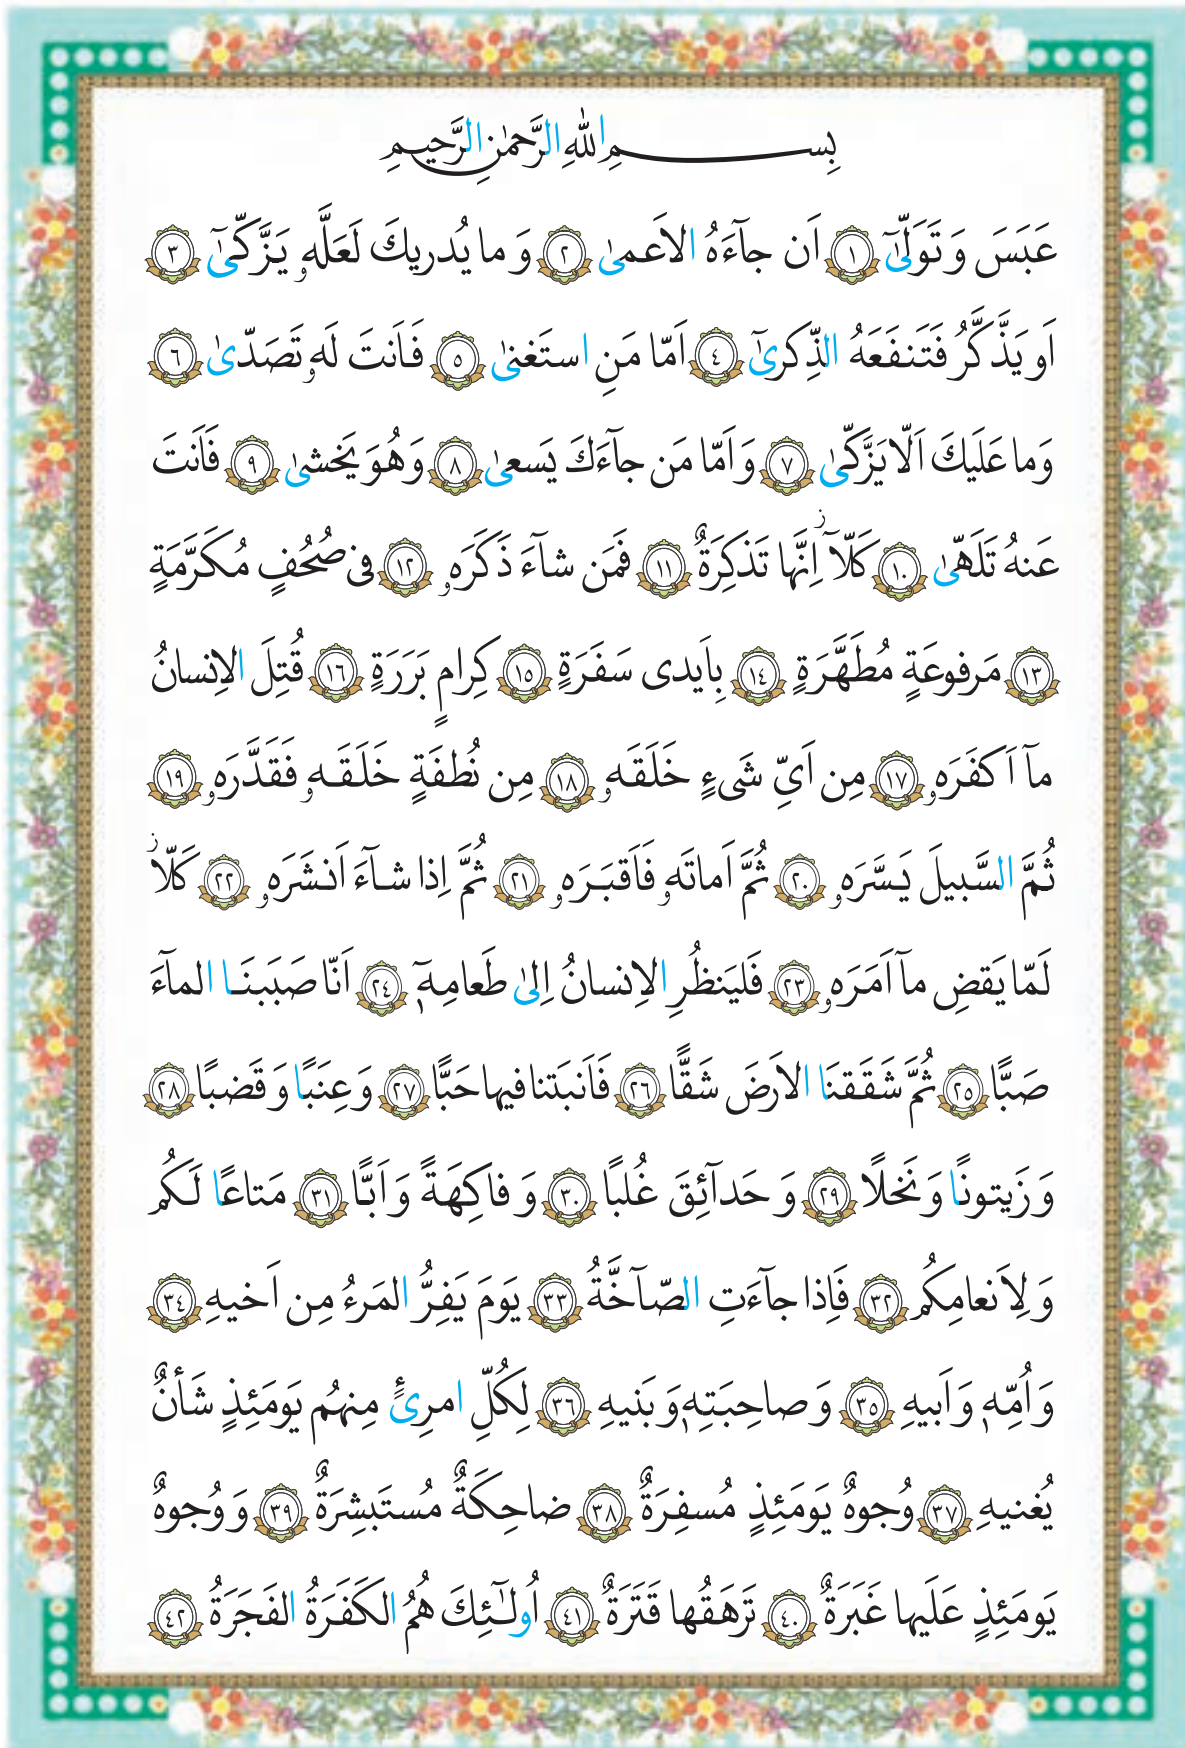 بِسمِ اللهِ الرَّحمٰنِ الرَّحیمِ
عَبَسَ وَ تَوَلّىٰٓ ﴿١﴾ اَن جآءَهُ الاَعمىٰ ﴿٢﴾ وَ ما یُدریكَ لَعَلَّهٗ یَزَّكّىٰٓ ﴿٣﴾
اَو یَذَّكَّرُ فَتَنفَعَهُ الذِّكرىٰٓ ﴿٤﴾ اَمّا مَنِ استَغنىٰ ﴿٥﴾ فَاَنتَ لَهٗ تَصَدّىٰ ﴿٦﴾
وَما عَلَیكَ اَلّا یَزَّكّىٰ ﴿٧﴾ وَ اَمّا مَن جآءَكَ یَسعىٰ ﴿٨﴾ وَهُوَ یَخشىٰ ﴿٩﴾ فَاَنتَ
عَنهُ تَلَهّىٰ ﴿١٠﴾ كَلّآ ز اِنَّها تَذكِرَةٌ ﴿١١﴾ فَمَن شآءَ ذَكَرَهٗ ﴿١٢﴾ فى صُحُفٍ مُكَرَّمَةٍ
﴿١٣﴾ مَرفوعَةٍ مُطَهَّرَةٍ ﴿١٤﴾ بِاَیدى سَفَرَةٍ ﴿١٥﴾ كِرامٍ بَرَرَةٍ ﴿١٦﴾ قُتِلَ الاِنسانُ
مآ اَكفَرَهٗ ﴿١٧﴾ مِن اَىِّ شَىءٍ خَلَقَهٗ ﴿١٨﴾ مِن نُطفَةٍ خَلَقَهٗ فَقَدَّرَهٗ ﴿١٩﴾
ثُمَّ السَّبیلَ یَسَّرَهٗ ﴿٢٠﴾ ثُمَّ اَماتَهٗ فَاَقبَرَهٗ ﴿٢١﴾ ثُمَّ اِذا شآءَ اَنشَرَهٗ ﴿٢٢﴾ كَلّا ز
لَمّا یَقضِ مآ اَمَرَهٗ ﴿٢٣﴾ فَلیَنظُرِ الاِنسانُ اِلىٰ طَعامِهٖٓ ﴿٢٤﴾ اَنّا صَبَبنَا المآءَ
صَبًّا ﴿٢٥﴾ ثُمَّ شَقَقنَا الاَرضَ شَقًّا ﴿٢٦﴾ فَاَنبَتنا فیها حَبًّا ﴿٢٧﴾ وَ عِنَبًا وَ قَضبًا ﴿٢٨﴾
وَ زَیتونًا وَ نَخلًا ﴿٢٩﴾ وَ حَدآئِقَ غُلبًا ﴿٣٠﴾ وَ فاكِهَةً وَ اَبًّا ﴿٣١﴾ مَتاعًا لَكُم
وَ لِاَنعامِكُم ﴿٣٢﴾ فَاِذا جآءَتِ الصّآخَّةُ ﴿٣٣﴾ یَومَ یَفِرُّ المَرءُ مِن اَخیهِ ﴿٣٤﴾
وَ اُمِّهٖ وَ اَبیهِ ﴿٣٥﴾ وَ صاحِبَتِهٖ وَ بَنیهِ ﴿٣٦﴾ لِكُلِّ امرِئٍ مِنهُم یَومَئِذٍ شَأنٌ
یُغنیهِ ﴿٣٧﴾ وُجوهٌ یَومَئِذٍ مُسفِرَةٌ ﴿٣٨﴾ ضاحِكَةٌ مُستَبشِرَةٌ ﴿٣٩﴾ وَ وُجوهٌ
یَومَئِذٍ عَلَیها غَبَرَةٌ ﴿٤٠﴾ تَرهَقُها قَتَرَةٌ ﴿٤١﴾ اُولـٰٓئِكَ هُمُ الكَفَرَةُ الفَجَرَةُ ﴿٤٢﴾